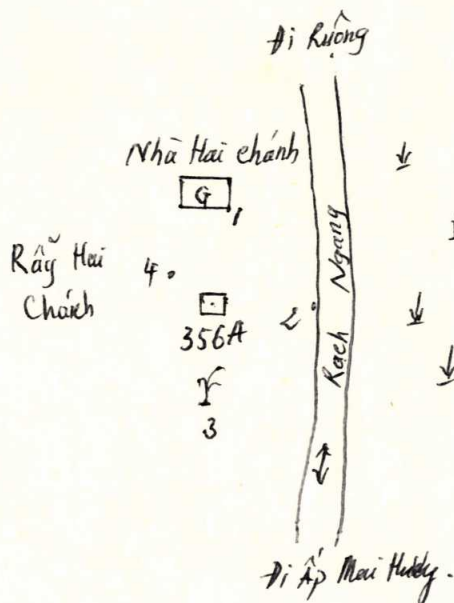 Đi Ruộng
Nhà Hai chánh
G
1
Rẫy Hai
Chánh
4
356A
2
3
Rạch Ngang
Đi Ấp